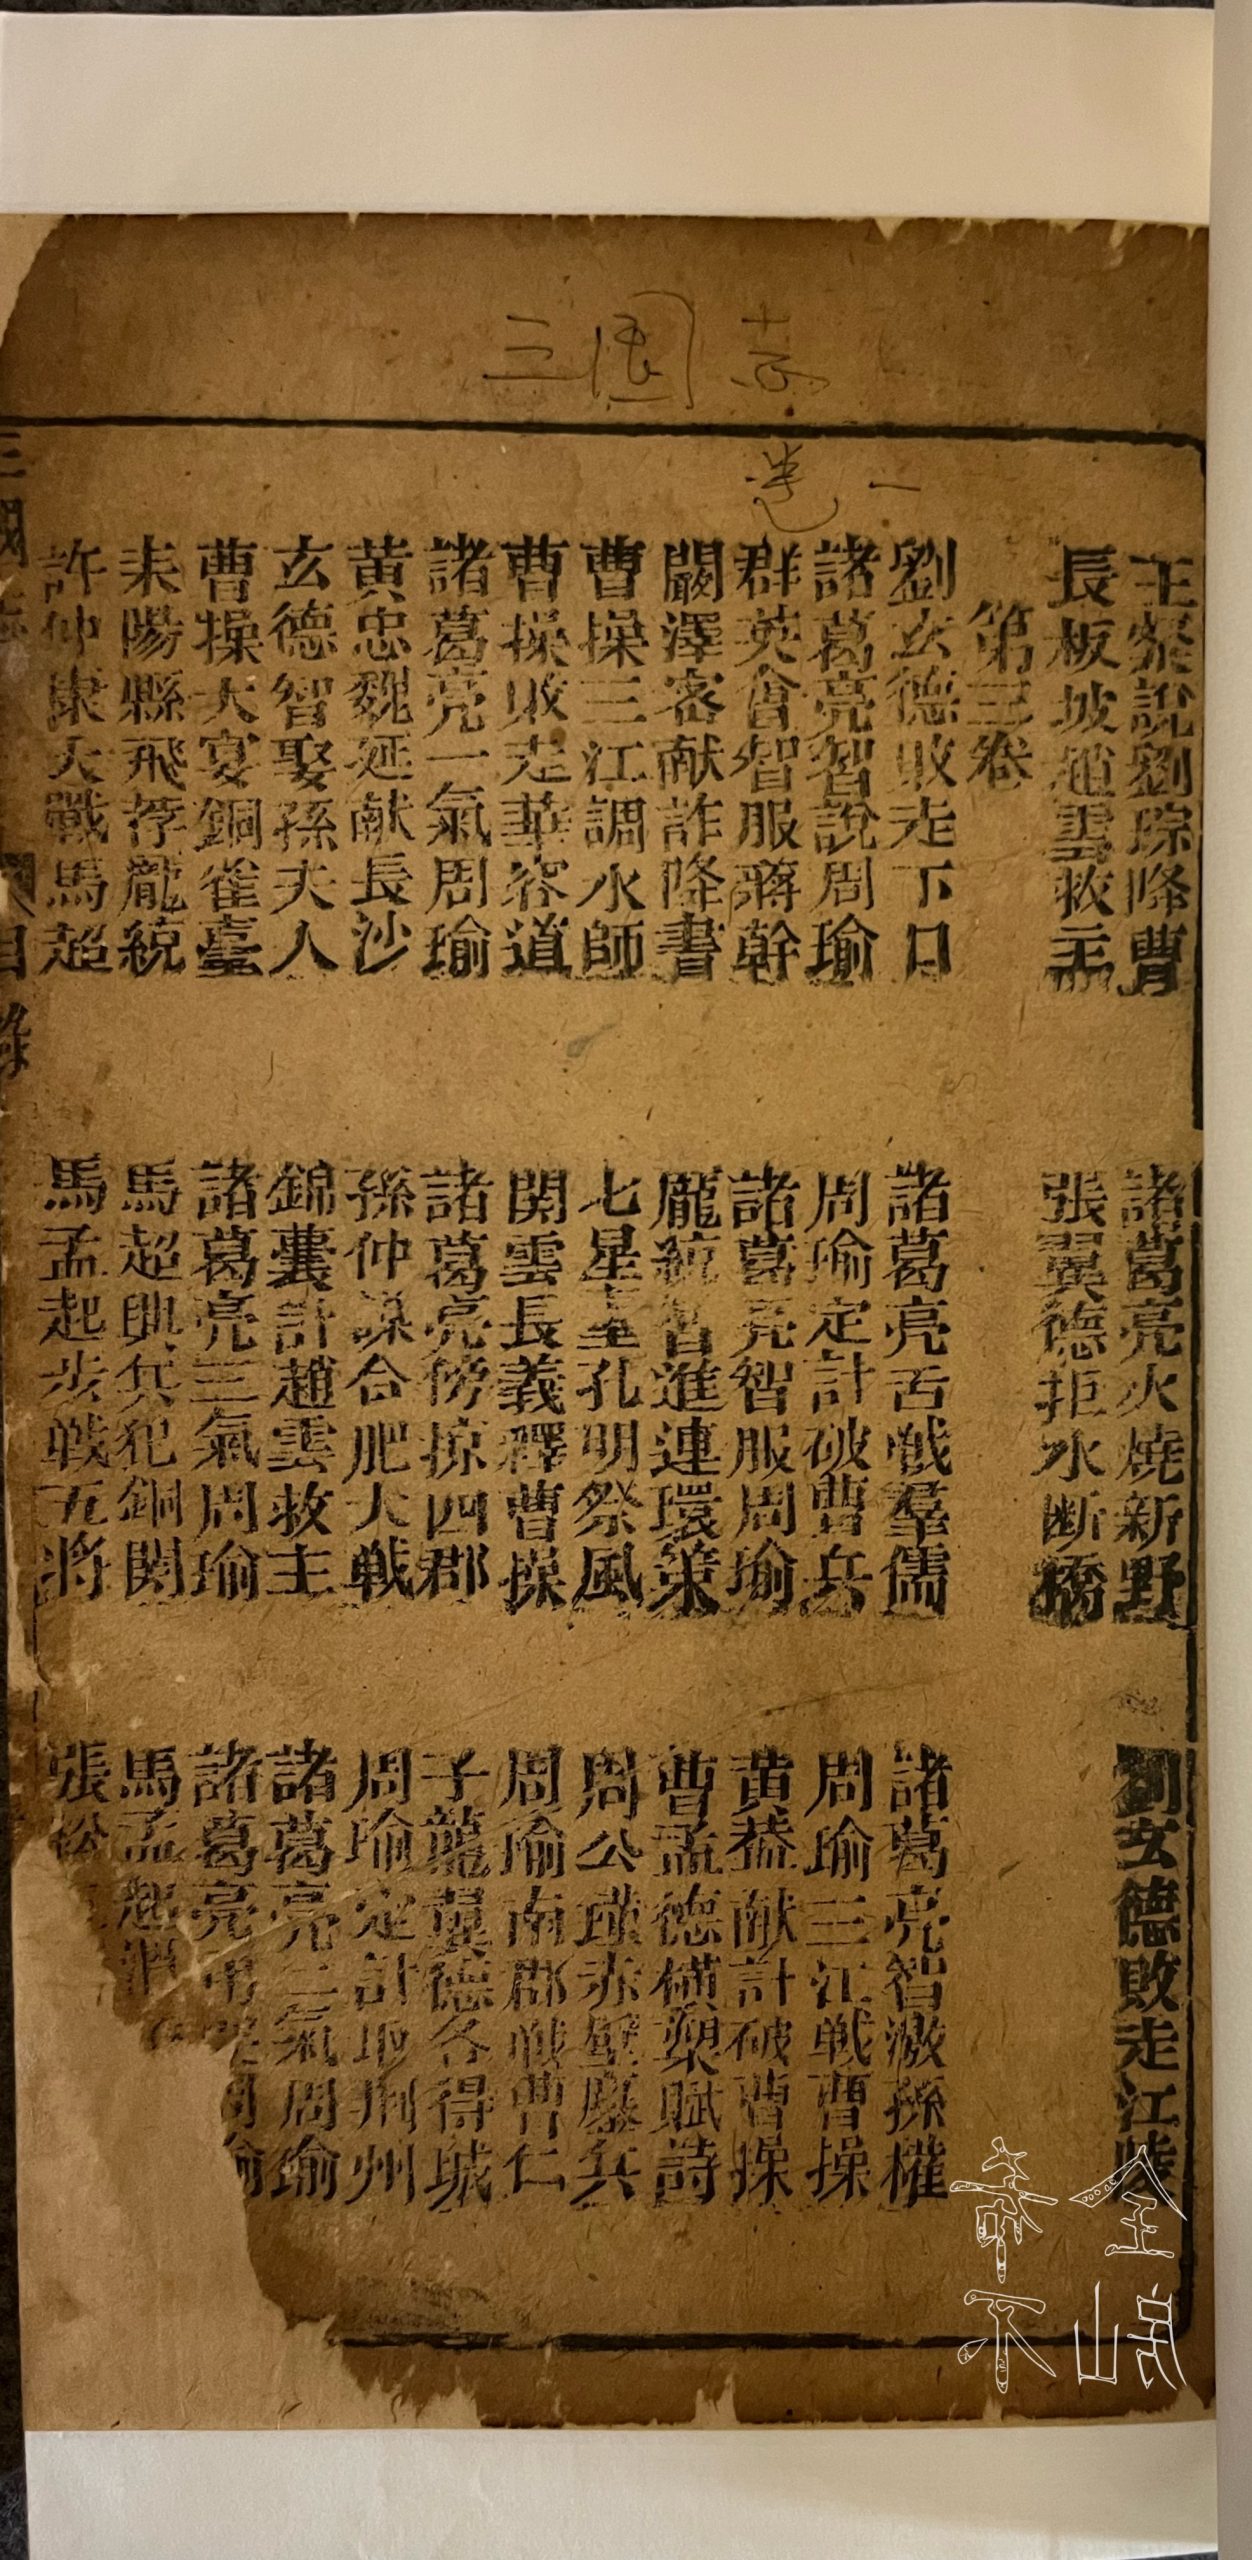 三國志
卷一
王粲說劉琮降曹 諸葛亮火燒新野 劉玄德敗走江陵
長板坡趙雲救主 張翼德拒水断橋
第三卷
劉玄德敗走下口 諸葛亮舌戦羣儒 諸葛亮智激孫權
諸葛亮智說周瑜 周瑜定計破曹兵 周瑜三江戦曹操
群英會智服蔣幹 諸葛亮智服周瑜 黄葢献計破曹操
闞澤密献詐降書 龐統智進連環策 曹孟德橫槊賦詩
曹操三江調水師 七星臺孔明祭風 周公瑾赤壁鏖兵
曹操敗走華容道 関雲長義釋曹操 周瑜南郡戦曹仁
諸葛亮一氣周瑜 諸葛亮傍掠四郡 子龍翼德各得城
黄忠魏延献長沙 孫仲謀合肥大戦 周瑜定計取荆州
玄德智娶孫夫人 錦囊計趙雲救主 諸葛亮二氣周瑜
曹操大宴銅雀臺 諸葛亮三氣周瑜 諸葛亮弔周瑜
耒陽縣飛荐龐統 馬超興兵犯銅関 馬孟起渭
許仲康大戰馬超 馬孟起步戦五将 張松
三國志 目錄